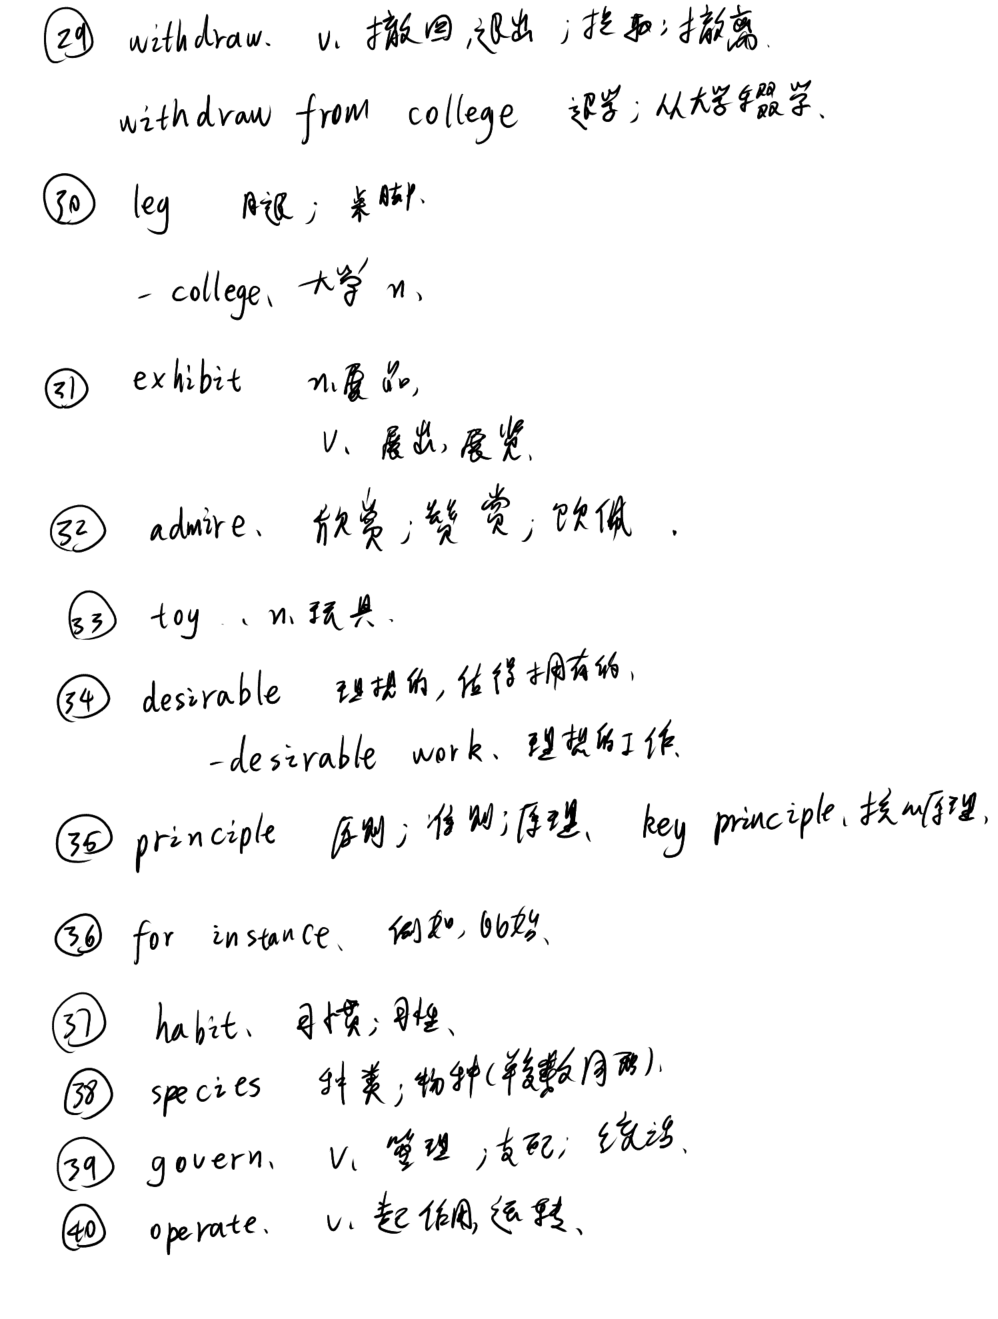 29 withdraw. v. 撤回,退出;提取;撤离.
withdraw from college 退学;从大学辍学.
30 leg 腿;桌脚.
- college. 大学 n.
31 exhibit n.展品,
v. 展出,展览.
32 admire. 欣赏;赞赏;钦佩.
33 toy. n. 玩具.
34 desirable 理想的,值得拥有的.
-desirable work. 理想的工作.
35 principle 原则;信则;原理. key principle. 核心原理.
36 for instance. 例如,比如.
37 habit. 习惯;习性.
38 species 种类;物种(单复数同形).
39 govern. v. 管理;支配;统治.
40 operate. v. 起作用,运转.